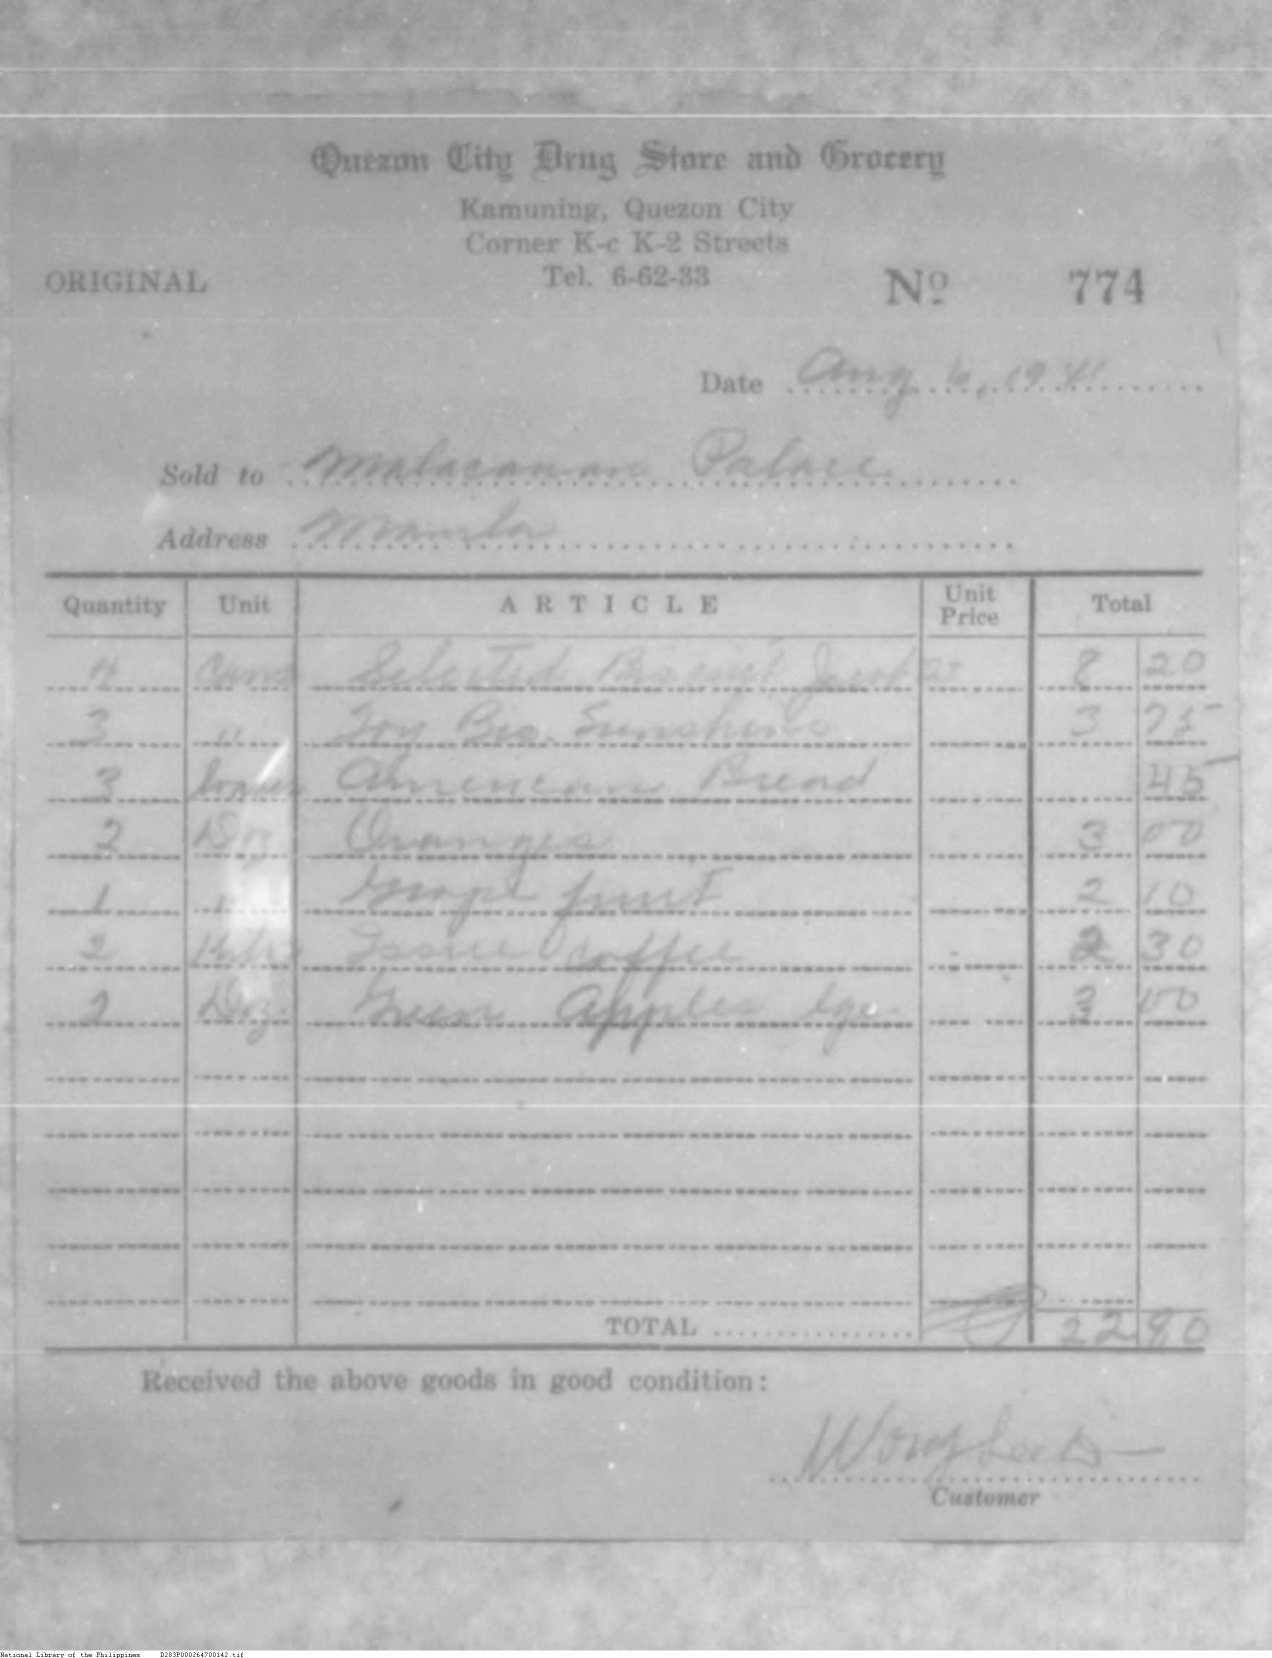 Quezon City Drug Store and Grocery
Kamuning, Quezon City
Corner K-c K-2 Streets
Tel. 6-62-33
ORIGINAL
No 774
Date Aug 6, 1941
Sold to Malacanan Palace
Address Manila
Quantity Unit ARTICLE Unit Price Total
4 Cans Selected Biscuit Jacobs 8 20
3 " Toy Bis. Sunshine 3 75
3 loaves American Bread 45
2 Doz Oranges 3 00
1 " Grape fruit 2 10
2 coffee 2 30
2 Doz. Green Apples lge. 3 00
TOTAL 22 80
Received the above goods in good condition:
Customer
National Library of the Philippines D283P000264700142.tif